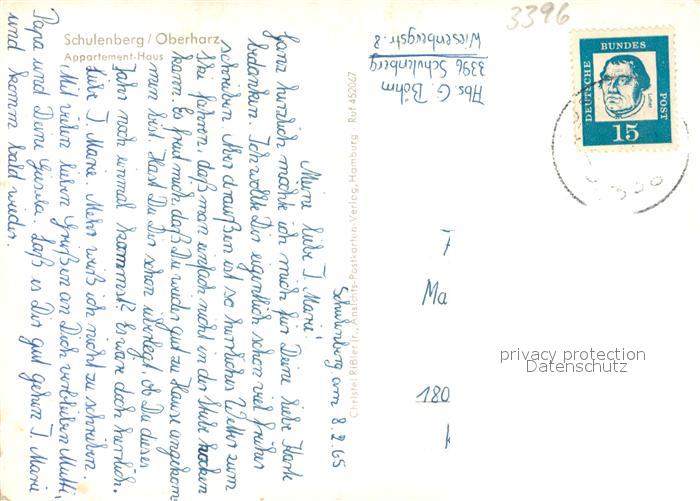 3396
Schulenberg / Oberharz
Appartement-Haus
Abs. G. Böhm
3396 Schulenberg
Wiesenbergstr. 8
DEUTSCHE BUNDESPOST
Luther
15
Schulenberg am 8.2.65
Meine liebe T. Marie!
Ganz herzlich möchte ich mich für Deine liebe Karte
bedanken. Ich wollte Dir eigentlich schon viel früher
schreiben. Aber draußen ist so herrliches Wetter zum
Ski fahren, daß man einfach nicht in der Stube hocken
kann. Es freut mich, daß Du wieder gut zu Hause angekom
men bist. Hast Du Dir schon überlegt, ob Du dieses
Jahr noch einmal kommst? Es wäre doch herrlich.
Liebe T. Marie. Mehr weiß ich nicht zu schreiben.
Mit vielen lieben Grüßen an Dich verbleiben Mutti,
Papa und Deine Gisela. Laß es Dir gut gehen T. Marie
und komm bald wieder.
Christel Rißler jr., Ansichts-Postkarten-Verlag, Hamburg Ruf 452067
Ma
180
privacy protection
Datenschutz